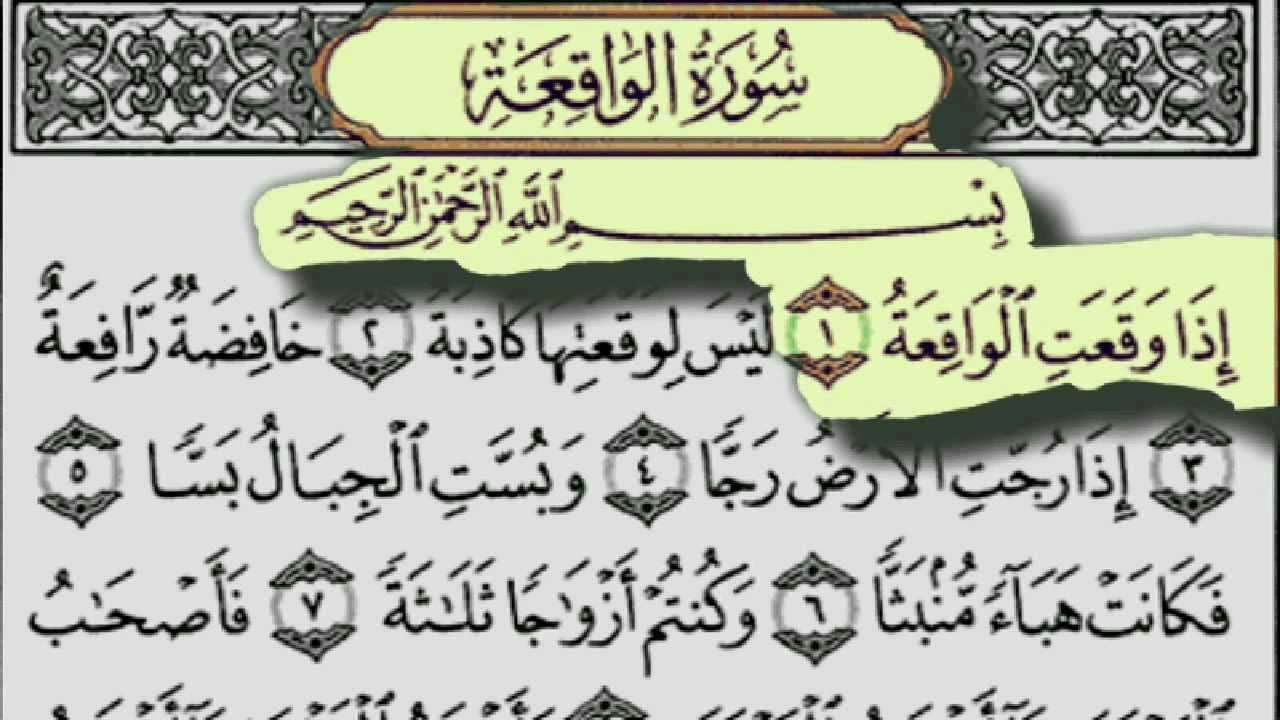 سُورَةُ الوَاقِعَةِ
بِسْمِ ٱللَّهِ ٱلرَّحْمَٰنِ ٱلرَّحِيمِ
إِذَا وَقَعَتِ ٱلْوَاقِعَةُ ١ لَيْسَ لِوَقْعَتِهَا كَاذِبَةٌ ٢ خَافِضَةٌ رَّافِعَةٌ
٣ إِذَا رُجَّتِ ٱلْأَرْضُ رَجًّا ٤ وَبُسَّتِ ٱلْجِبَالُ بَسًّا ٥
فَكَانَتْ هَبَآءً مُّنۢبَثًّا ٦ وَكُنتُمْ أَزْوَٰجًا ثَلَٰثَةً ٧ فَأَصْحَٰبُ